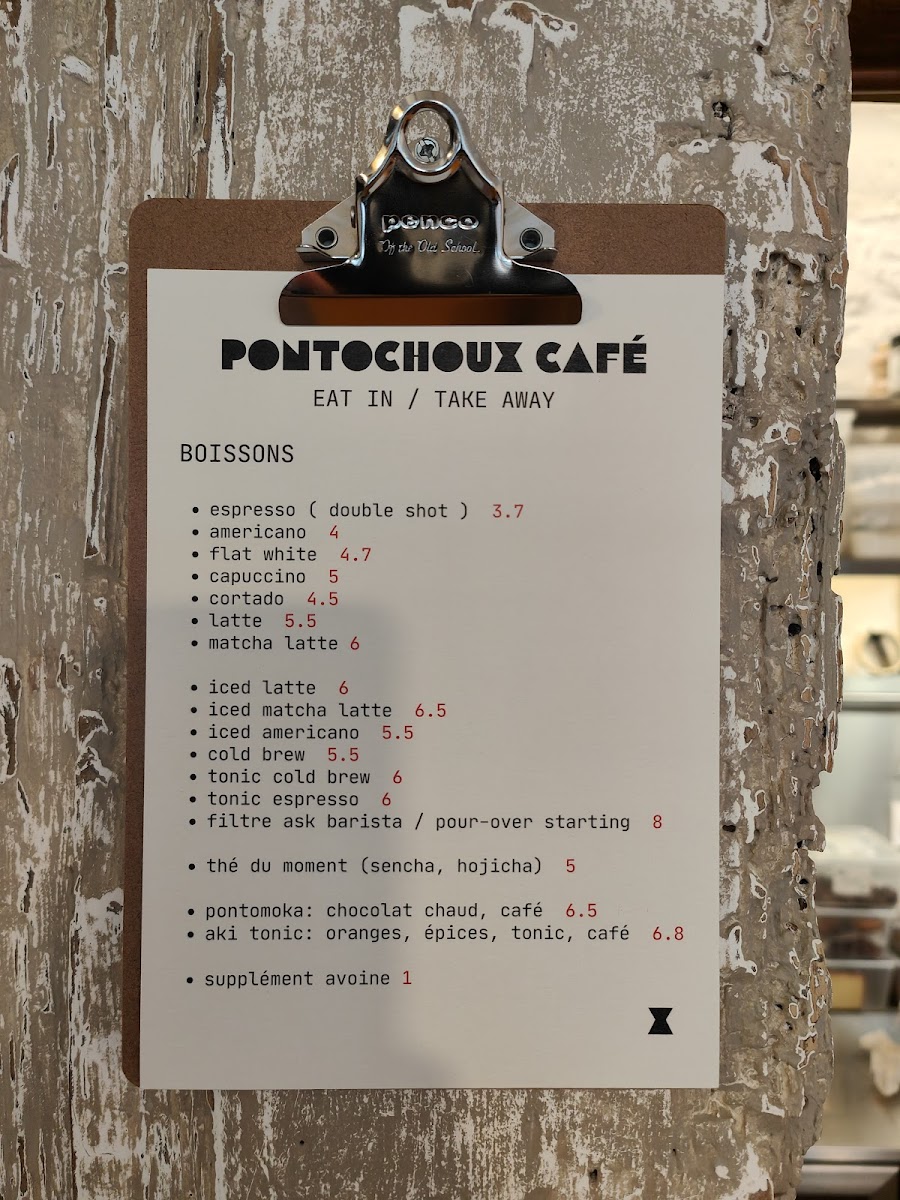 penco
Of the Old School.
PONTOCHOUX CAFÉ
EAT IN / TAKE AWAY
BOISSONS
• espresso ( double shot ) 3.7
• americano 4
• flat white 4.7
• capuccino 5
• cortado 4.5
• latte 5.5
• matcha latte 6
• iced latte 6
• iced matcha latte 6.5
• iced americano 5.5
• cold brew 5.5
• tonic cold brew 6
• tonic espresso 6
• filtre ask barista / pour-over starting 8
• thé du moment (sencha, hojicha) 5
• pontomoka: chocolat chaud, café 6.5
• aki tonic: oranges, épices, tonic, café 6.8
• supplément avoine 1